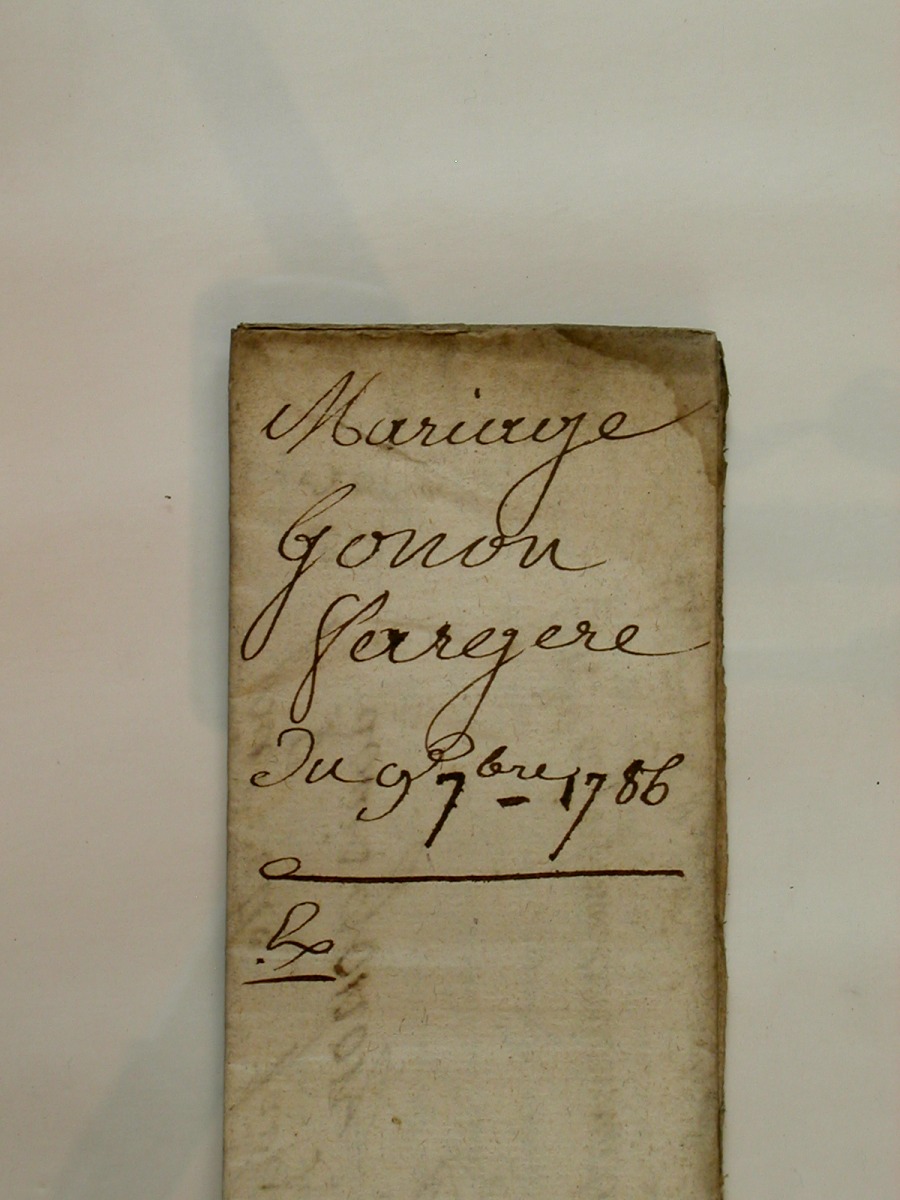 Mariage
Gonon
Fargere
Du 9 7bre 1786